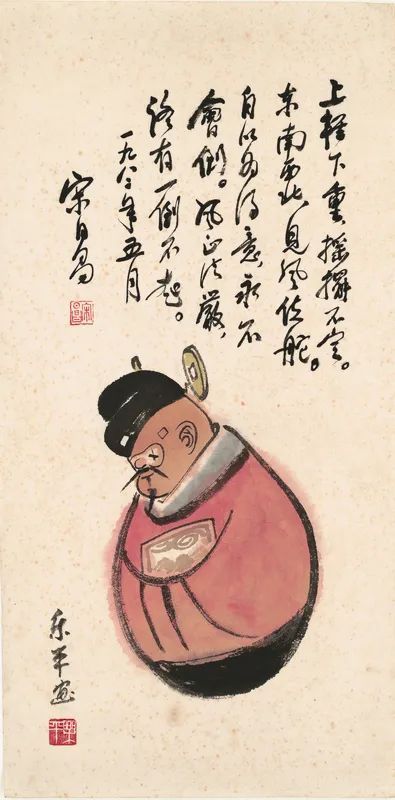 上轻下重，摇摆不定。
东南西北，见风使舵。
自以为得意，永不
会倒。风正法严，
终有一倒不起。
一九八年五月
宋日昌
乐平画